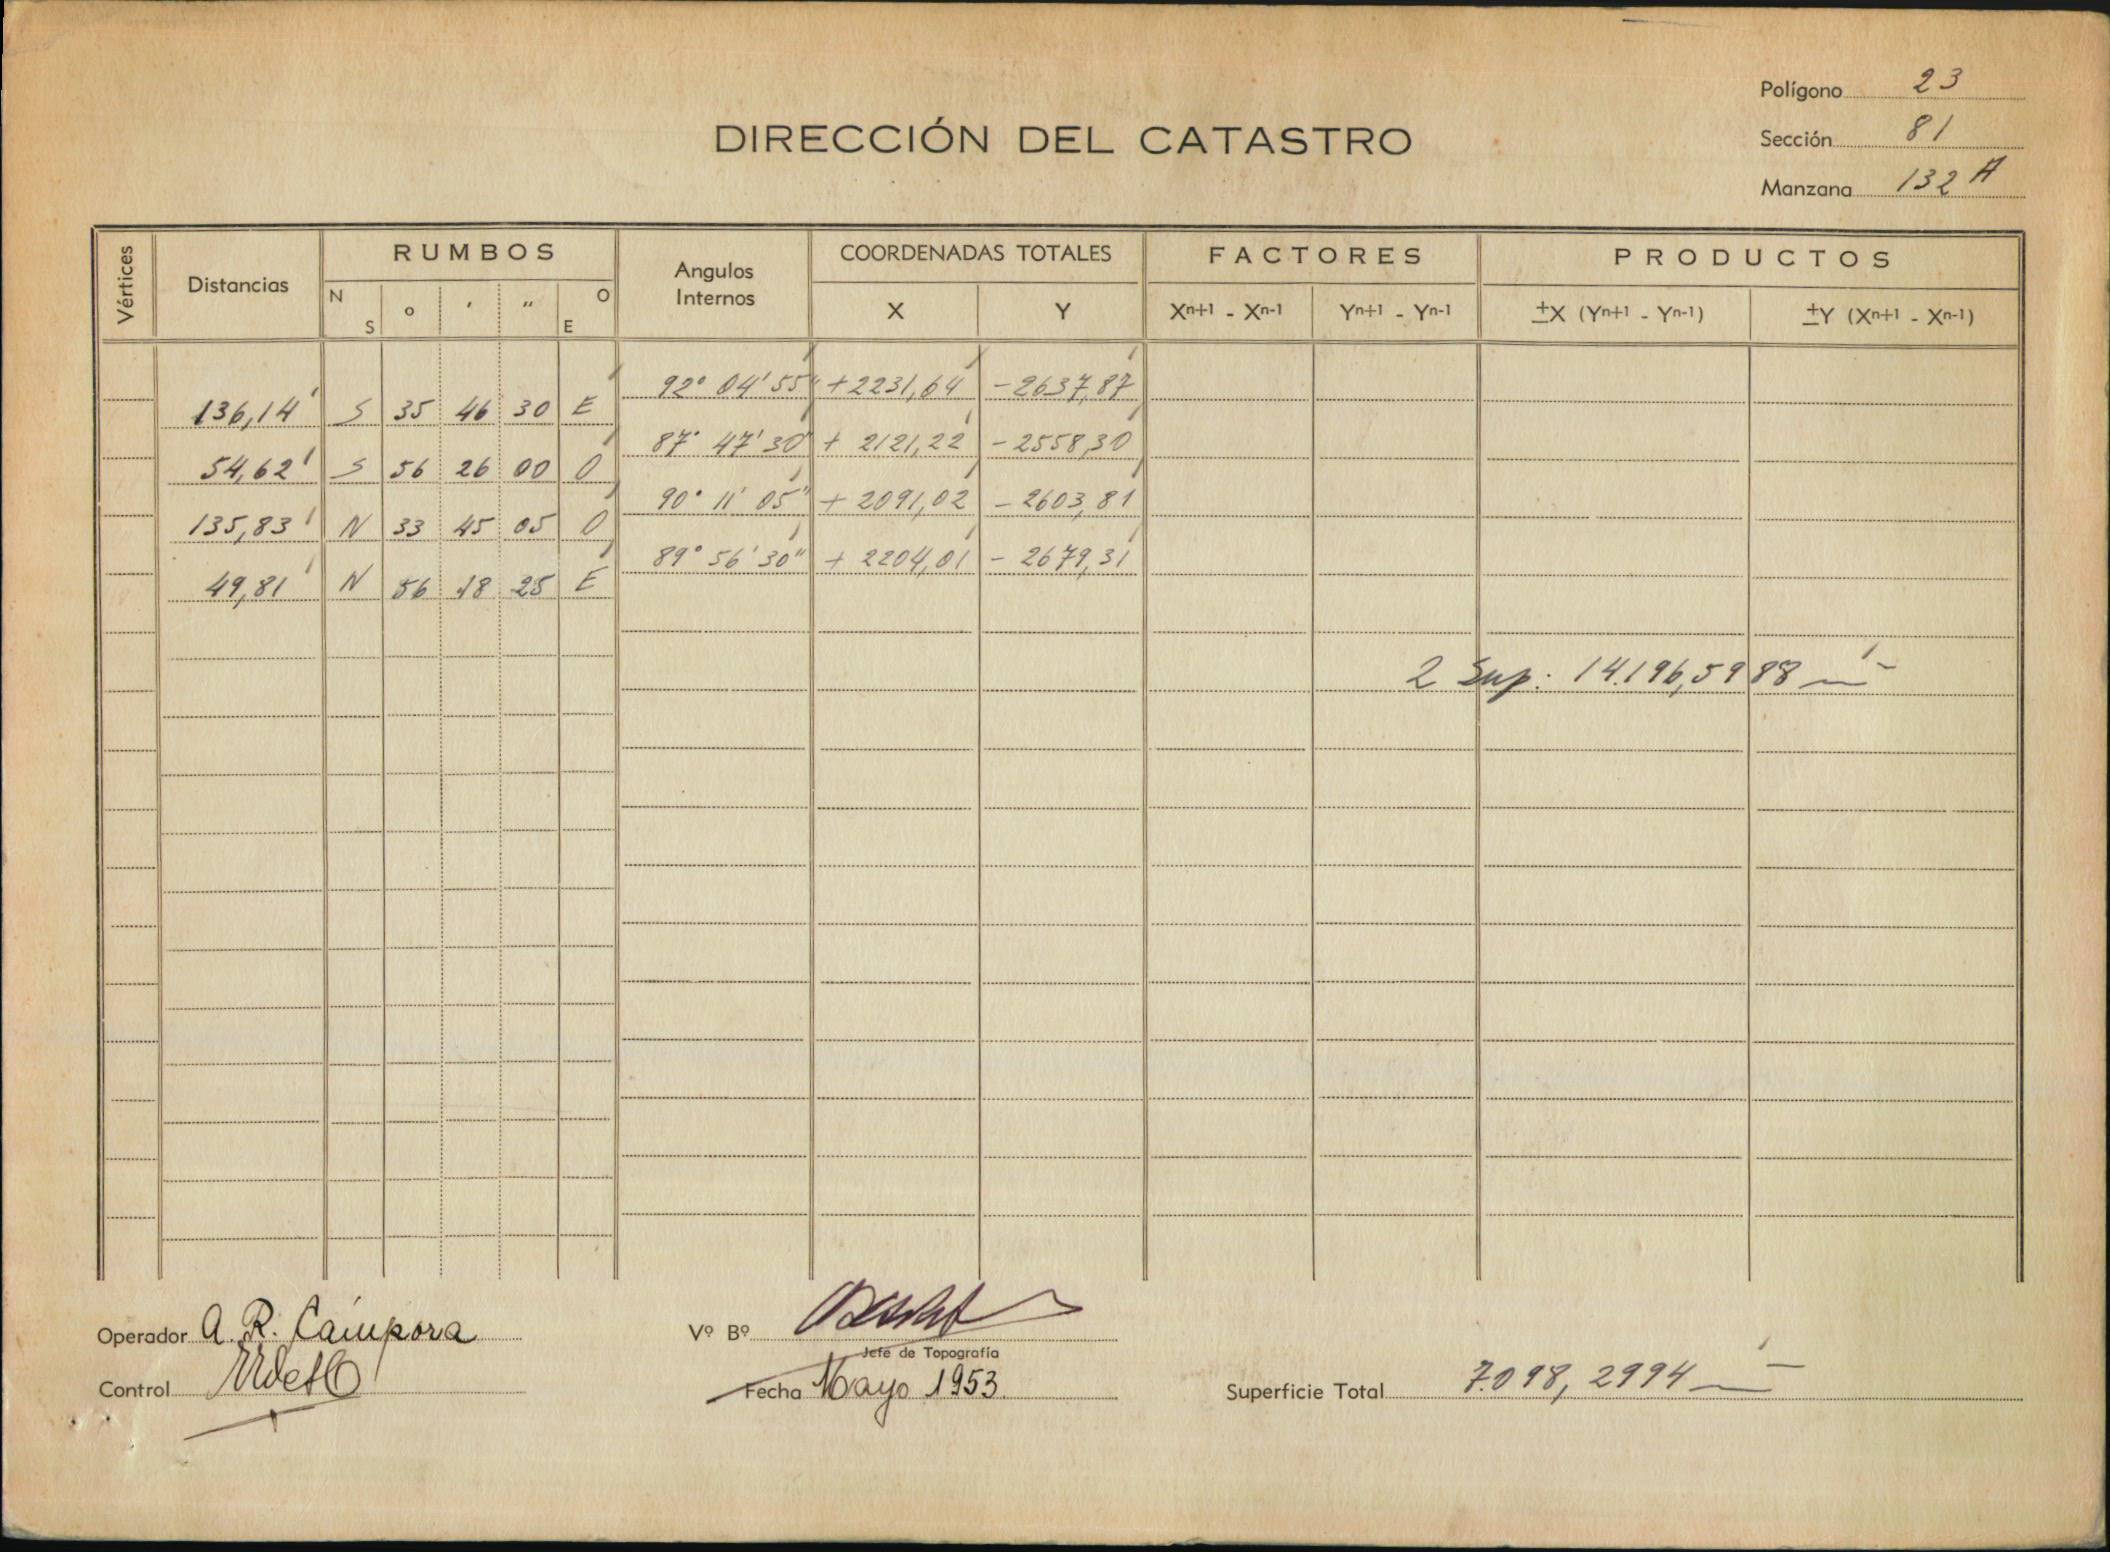 Polígono 23
DIRECCIÓN DEL CATASTRO
Sección 81
Manzana 132 A
Vértices Distancias RUMBOS Angulos Internos COORDENADAS TOTALES FACTORES PRODUCTOS
N S ° ' " O E X Y Xn+1 - Xn-1 Yn+1 - Yn-1 ±X (Yn+1 - Yn-1) ±Y (Xn+1 - Xn-1)
92° 04' 55" +2231,64 -2637,87
136,14 S 35 46 30 E
87° 47' 30" + 2121,22 -2558,30
54,62 S 56 26 00 O
90° 11' 05" + 2091,02 - 2603,81
135,83 N 33 45 05 O
89° 56' 30" + 2204,01 - 2679,31
49,81 N 56 18 25 E
2 Sup: 14.196,5988
Operador A. R. Cámpora
Vº Bº
Jefe de Topografía
Control
Fecha Mayo 1953
Superficie Total 7.098,2994